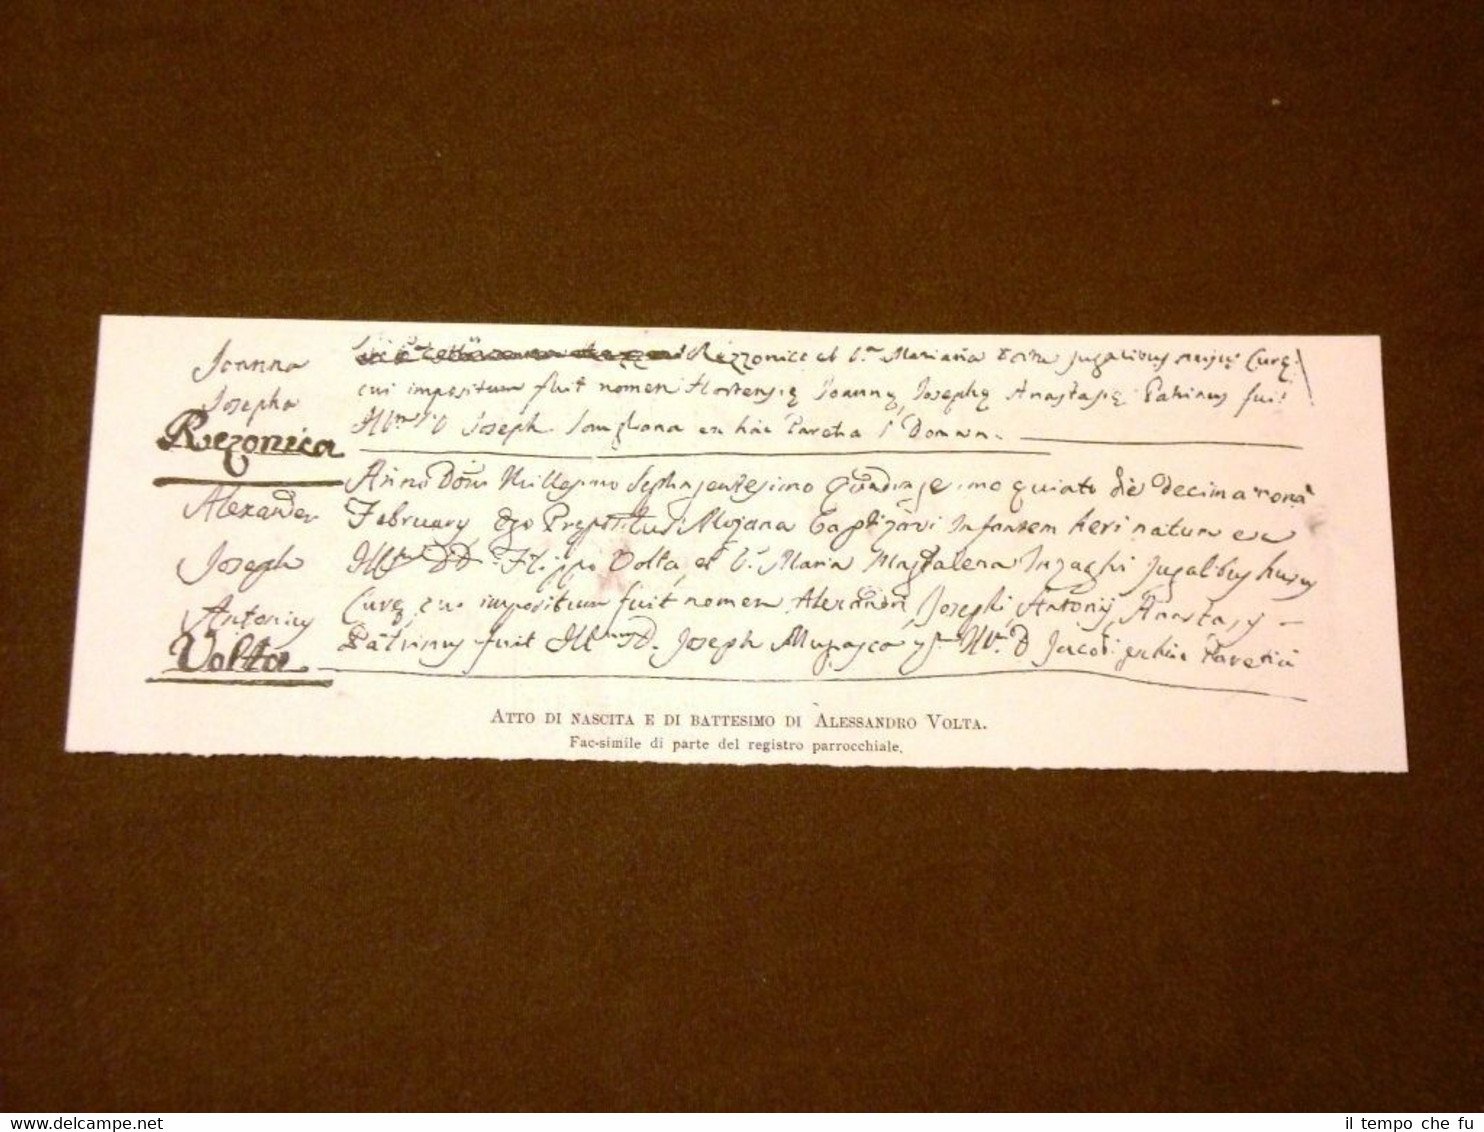 Joanna
Josepha
Rezonica
Rezzonico et Mariana Jugalibus Curę
cui impositum fuit nomen Hortensię Joannę, Josephę Anastasię Patrinus fuit
Joseph ex hac
Alexander
Joseph
Antonius
Volta
Anno Dom Millesimo Septingentesimo Quadragesimo quinto die Decima nona
February Ego Prepositus Mojana baptizavi Infantem heri natum ex
Filippo Volta, et Maria Magdalena Inzaghi Jugalibus huius
Curę cui impositum fuit nomen Alexandri, Josephi, Antonij, Anastasy
Patrinus fuit D. Joseph D Jacobi
ATTO DI NASCITA E DI BATTESIMO DI ALESSANDRO VOLTA.
Fac-simile di parte del registro parrocchiale.
www.delcampe.net
il tempo che fu